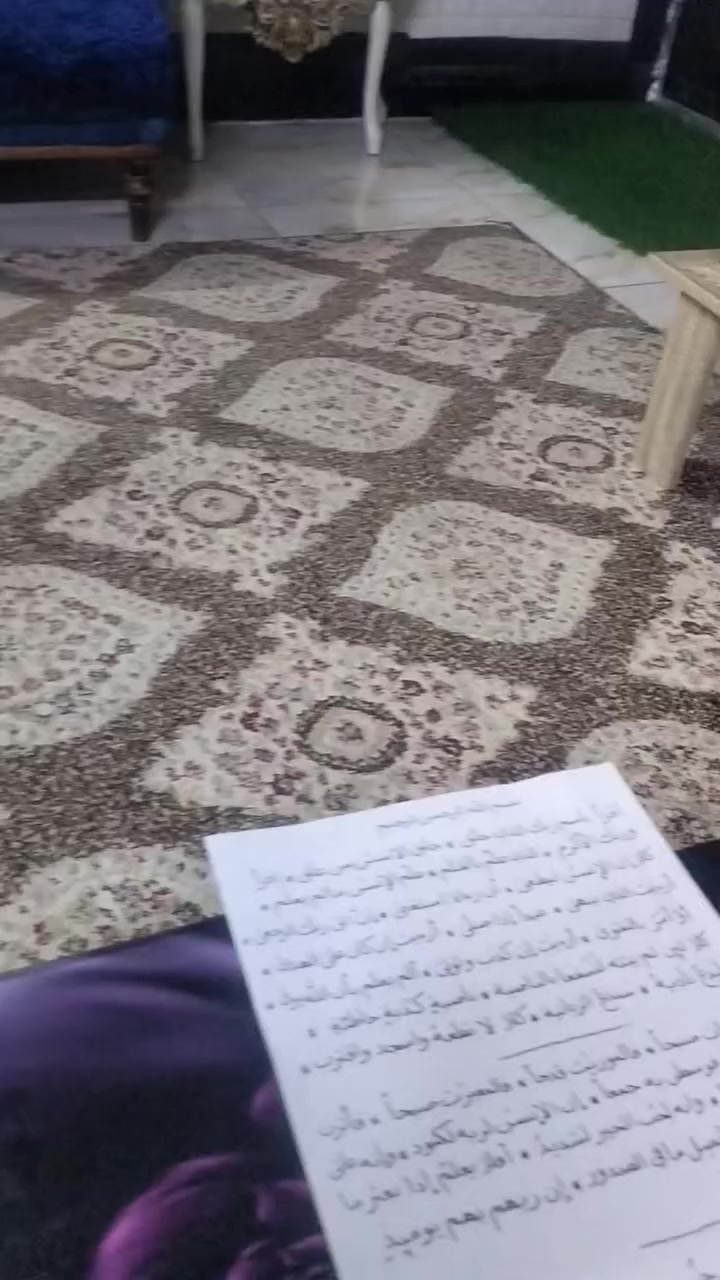 بسم الله الرحمن الرحيم
اقرأ باسم ربك الذي خلق • خلق الإنسن من علق • اقرأ
وربك الأكرم • الذى علم بالقلم • علم الإنسن ما لم يعلم •
كلا إن الإنسن ليطغى • أن رءاه استغنى • إن إلى ربك الرجعى •
أرءيت الذى ينهى • عبداً إذا صلى • أرءيت إن كان على الهدى •
أو أمر بالتقوى • أرءيت إن كذب وتولى • ألم يعلم بأن الله يرى •
كلا لئن لم ينته لنسفعاً بالناصية • ناصية كذبة خاطئة •
ناديه • سندع الزبانية • كلا لا تطعه واسجد واقترب •
ضبحاً • فالموريت قدحاً • فالمغيرت صبحاً • فأثرن
فوسطن به جمعاً • إن الإنسن لربه لكنود • وإنه على
• وإنه لحب الخير لشديد • أفلا يعلم إذا بعثر ما
وحصل ما فى الصدور • إن ربهم بهم يومئذ